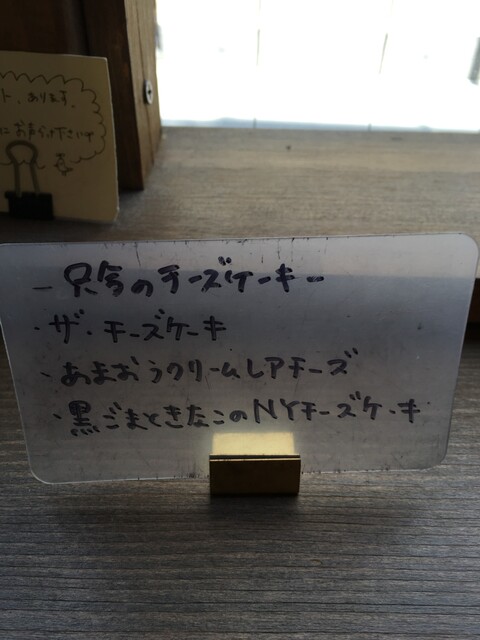 ト、あります。
にお声がけ下さいせ
- 只今のチーズケーキ -
・ザ・チーズケーキ
・あまおうクリームレアチーズ
・黒ごまときなこのNYチーズケーキ